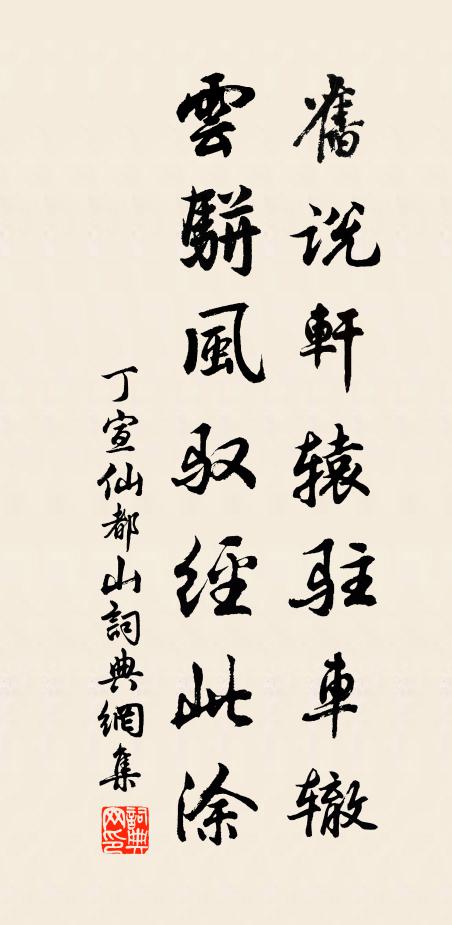 舊说軒辕駐車辙
雲駢風驭經此涂
丁宣仙都山詞典網集
詞典网印